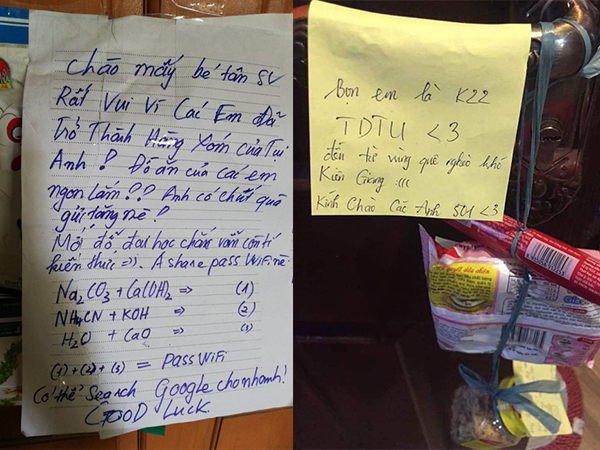 chào mấy bé tân sv
Rất Vui Vì Các Em Đã
Trở Thành Hàng Xóm của Tụi
Anh! Đồ ăn của các em
ngon lắm?? Anh có chút quà
gửi tặng nè!
Mới đỗ đại học chắc vẫn còn tí
kiến thức =)). A share pass WiFi nè
Na2CO3 + Ca(OH)2 => (1)
NH4CN + KOH => (2)
H2O + CaO => (3)
(1) + (2) + (3) = pass WiFi
Có thể search Google cho nhanh!
GOOD LUCK.
Bọn em là K22
TDTU <3
đến từ vùng quê nghèo khó
Kiên Giang :(((
Kính Chào Các Anh <3